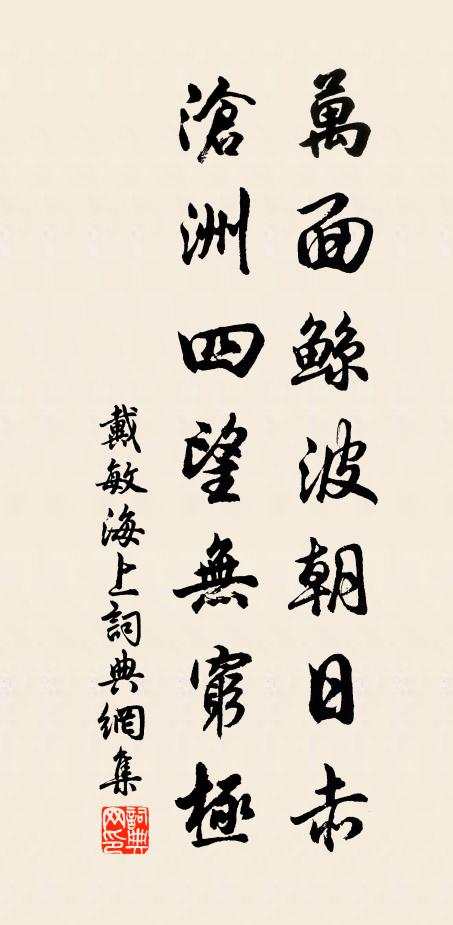 萬面鲸波朝日赤
滄洲四望無窮極
戴敏海上詞典網集
詞典网印